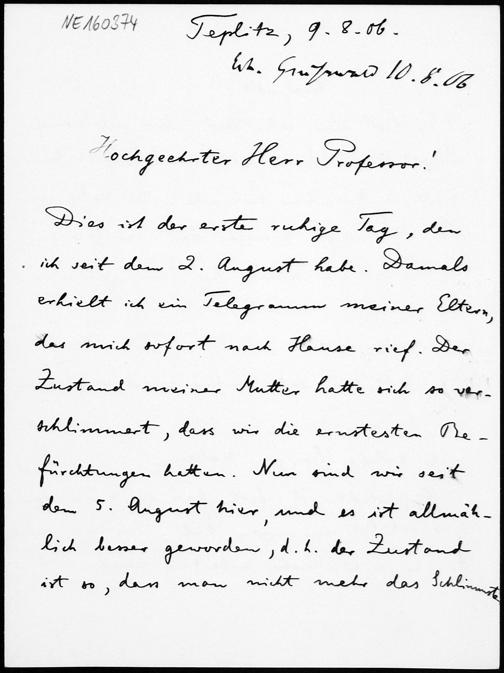 NE160374
Teplitz, 9.8.06.
Erh. Greifswald 10.8.06
Hochgeehrter Herr Professor!
Dies ist der erste ruhige Tag, den
ich seit dem 2. August habe. Damals
erhielt ich ein Telegramm meiner Eltern,
das mich sofort nach Hause rief. Der
Zustand meiner Mutter hatte sich so ver-
schlimmert, dass wir die ernstesten Be-
fürchtungen hatten. Nun sind wir seit
dem 5. August hier, und es ist allmäh-
lich besser geworden, d.h. der Zustand
ist so, dass man nicht mehr das Schlimmste